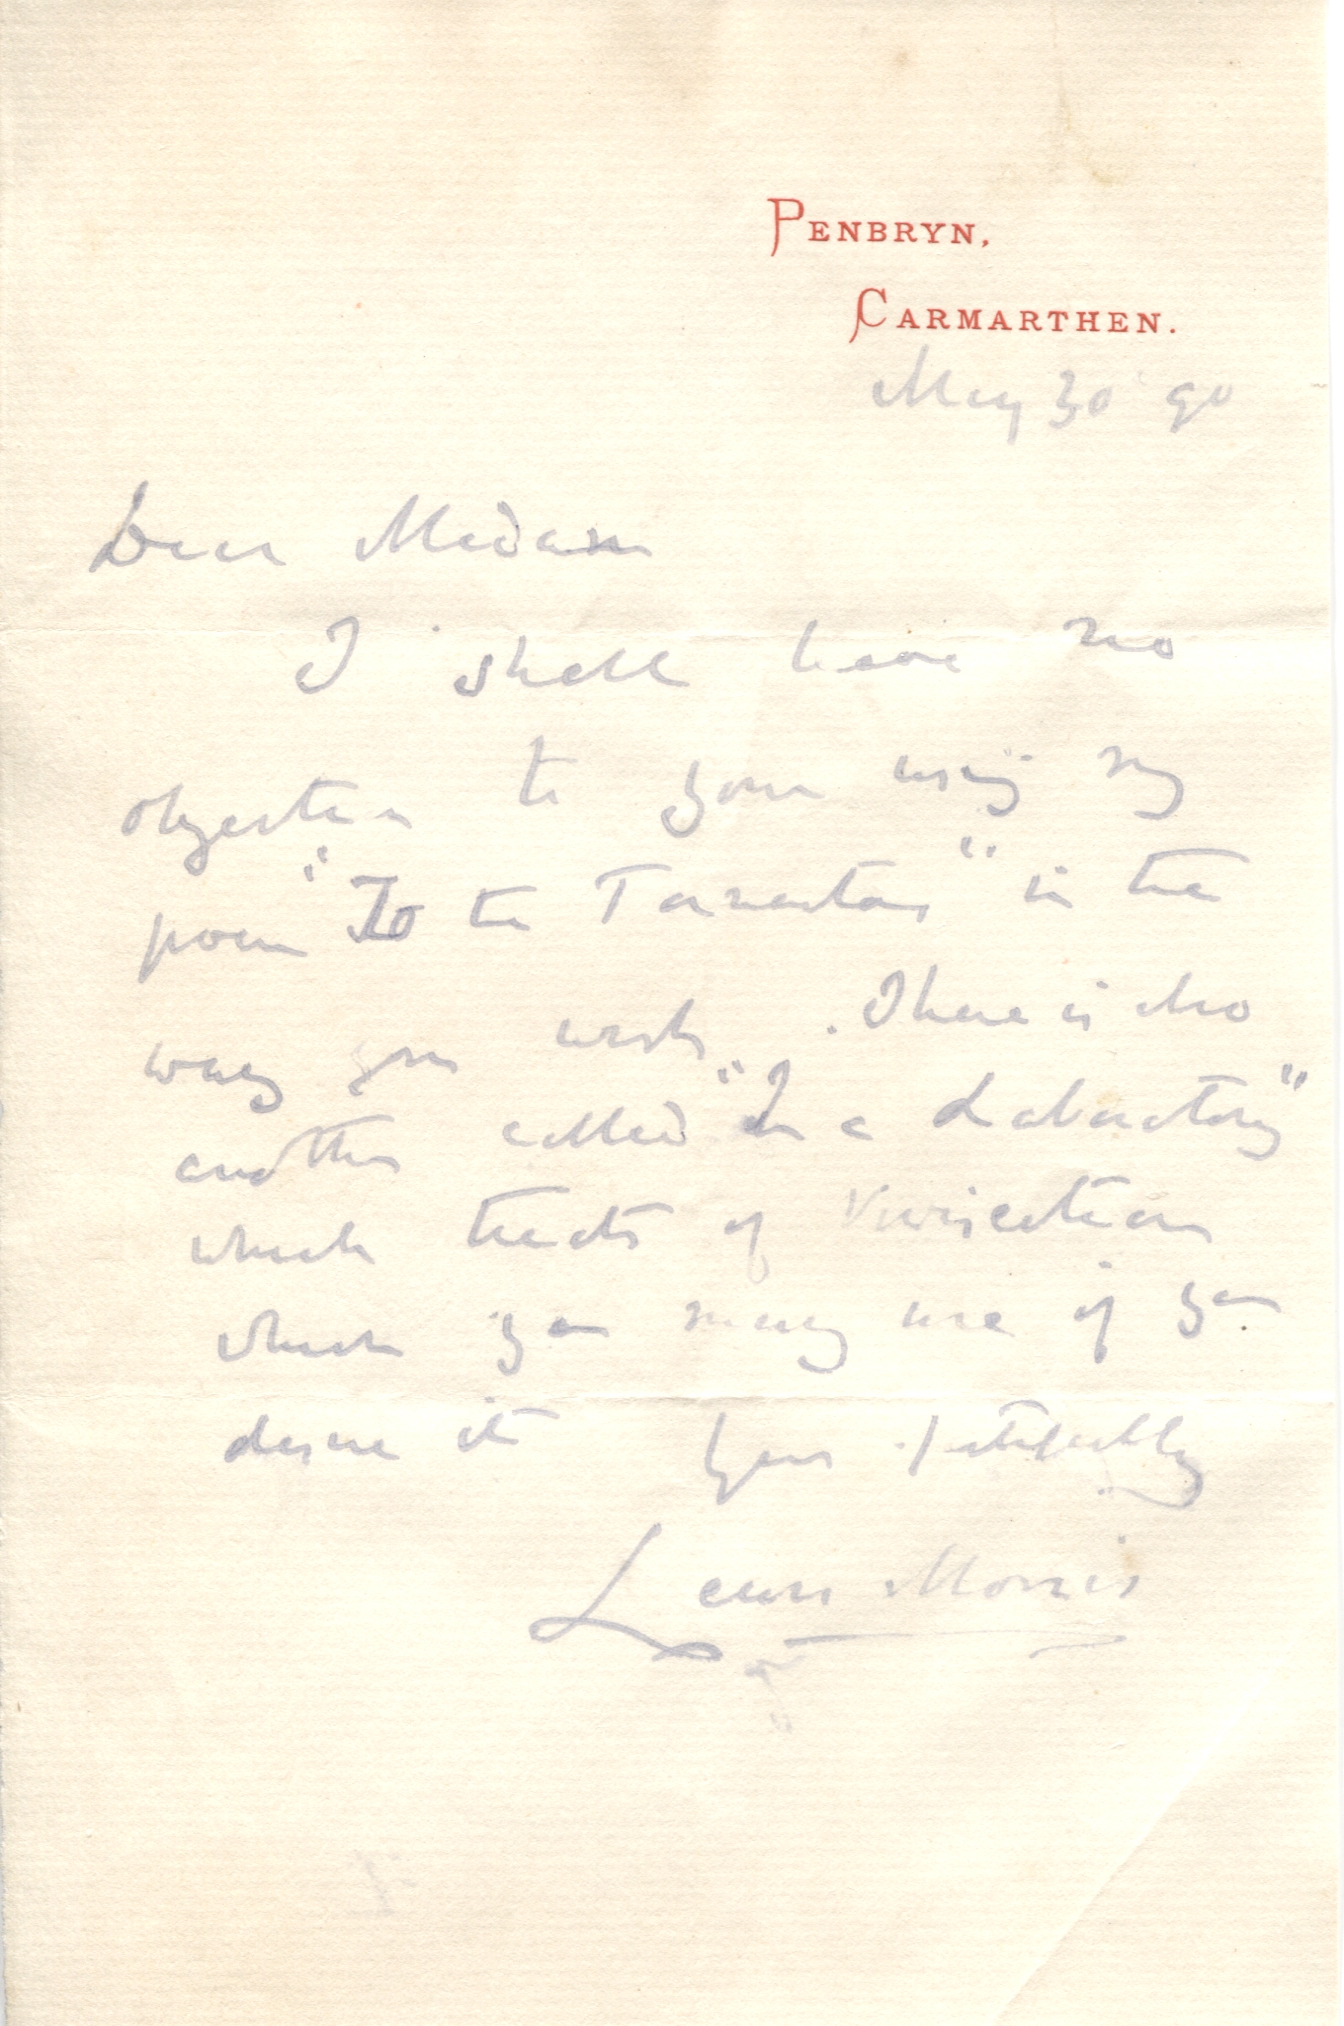 PENBRYN,
CARMARTHEN.
May 30 90
Dear Madam
I shall have no
objection to your using my
poem "To the Tormentors" in the
way you wish. There is also
another called "In a Laboratory"
which treats of Vivisection
which you may use if you
desire it Yours faithfully
Lewis Morris